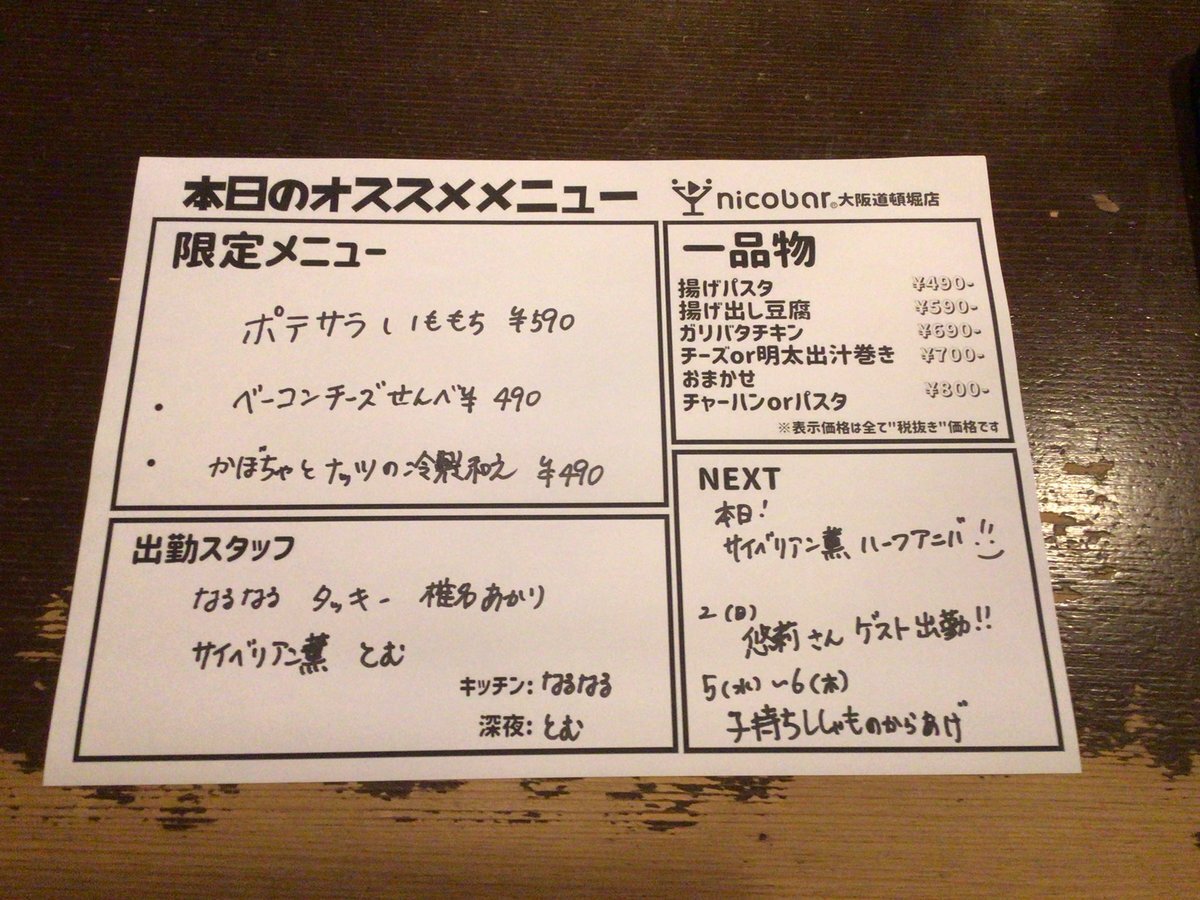 本日のオススメメニュー
nicobar® 大阪道頓堀店
限定メニュー
ポテサラいももち ¥590
・ベーコンチーズせんべ¥ 490
・かぼちゃとナッツの冷製和え ¥490
一品物
揚げパスタ ¥490-
揚げ出し豆腐 ¥590-
ガリバタチキン ¥690-
チーズor明太出汁巻き ¥700-
おまかせ
チャーハンorパスタ ¥800-
※表示価格は全て"税抜き"価格です
出勤スタッフ
なるなる タッキー 椎名あかり
サイベリアン薫 とむ
キッチン: なるなる
深夜: とむ
NEXT
本日!
サイベリアン薫 ハーフアニバ!!
2(日)
悠莉さん ゲスト出勤!!
5(水)~6(木)
子持ちししゃものからあげ